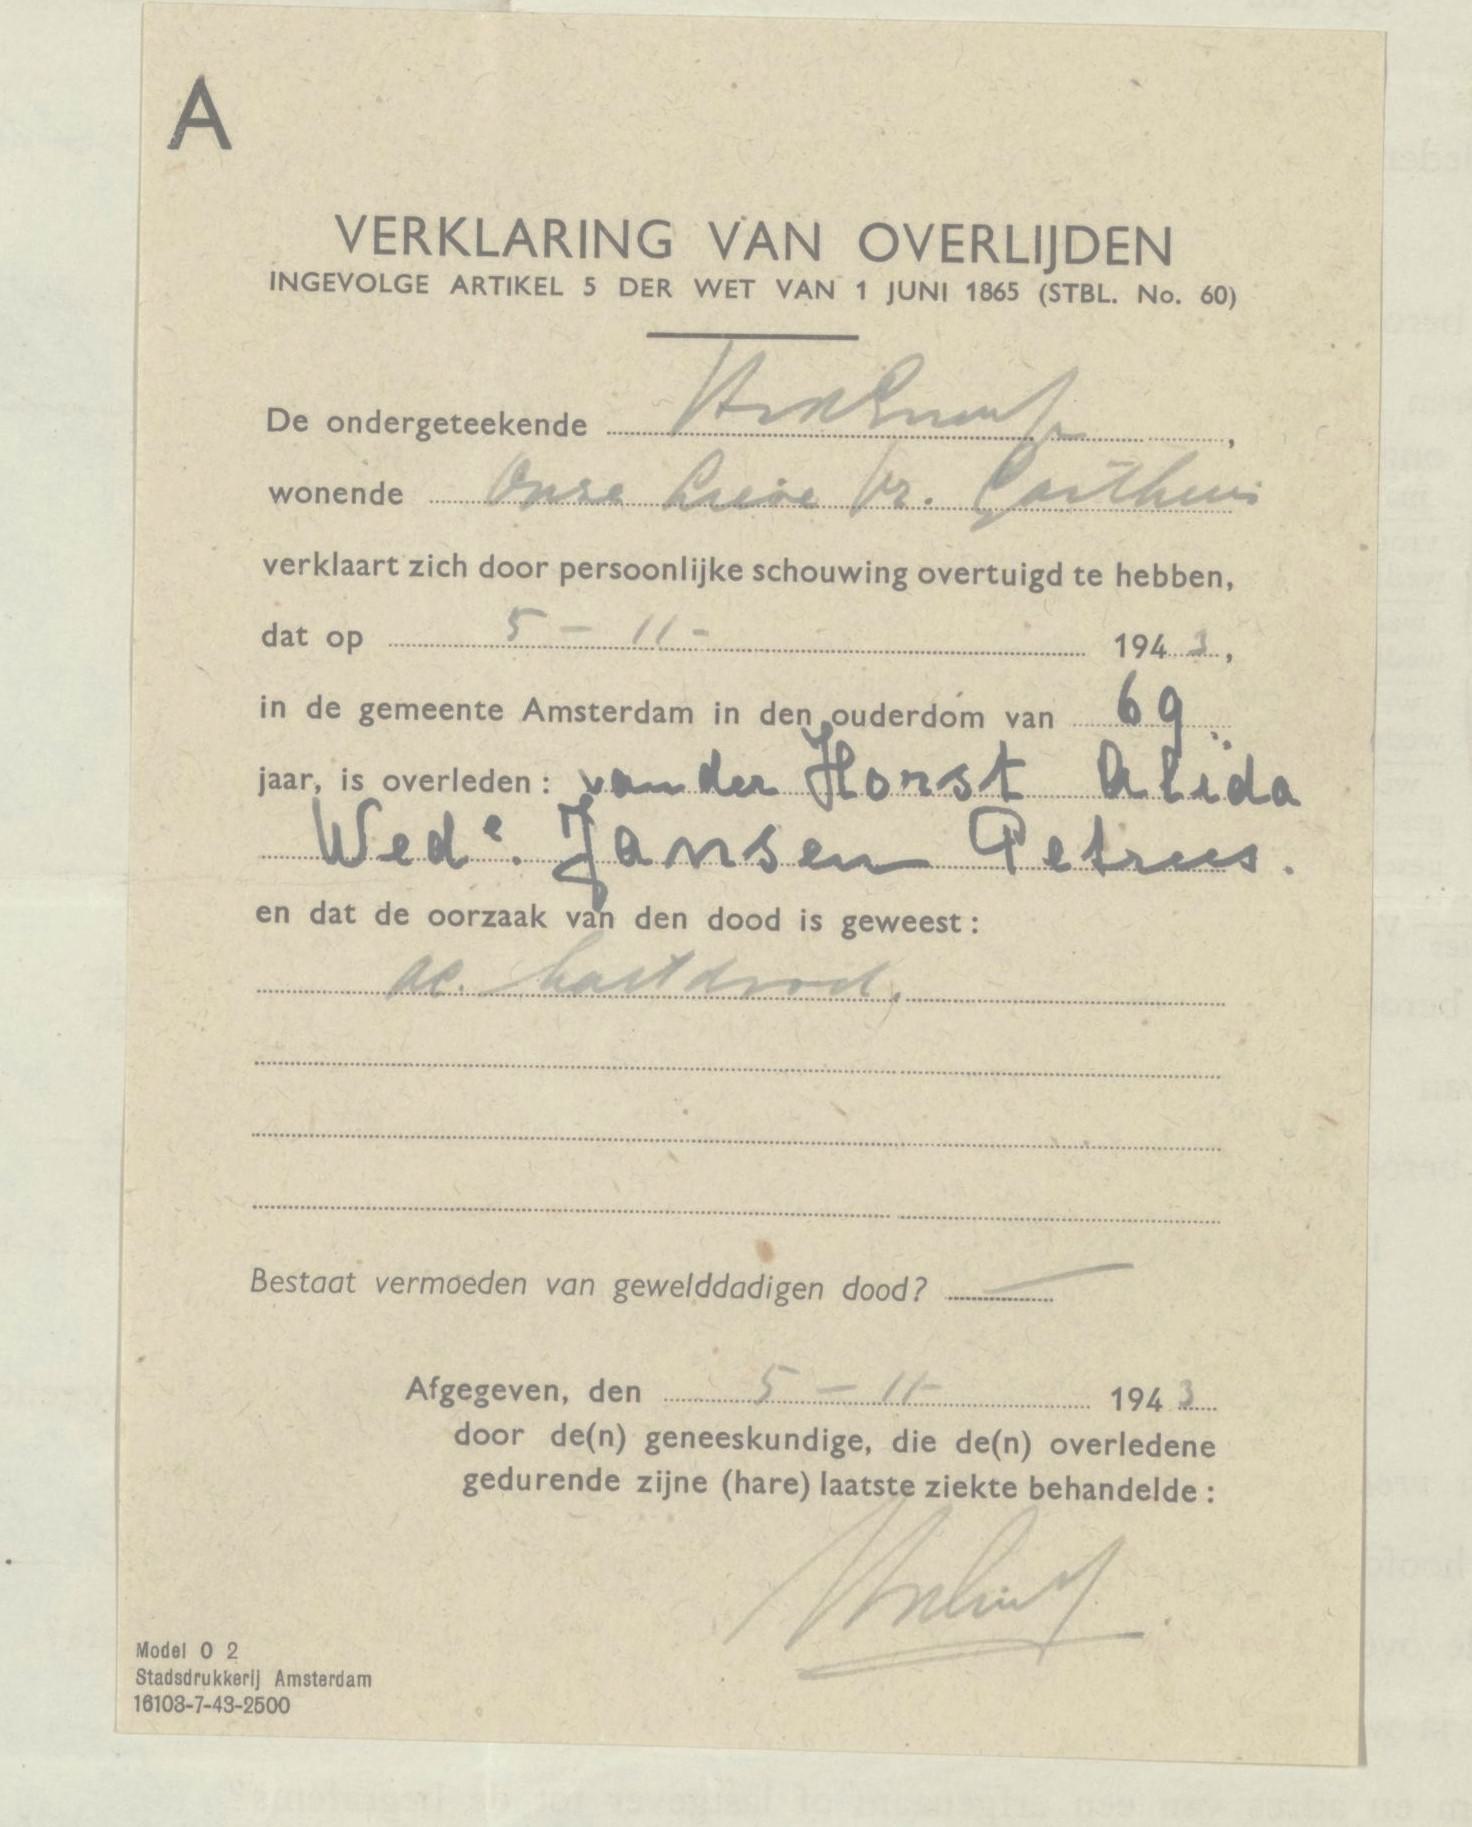 A
VERKLARING VAN OVERLIJDEN
INGEVOLGE ARTIKEL 5 DER WET VAN 1 JUNI 1865 (STBL. No. 60)
De ondergeteekende ,
wonende Onze Lieve Vr. Gasthuis
verklaart zich door persoonlijke schouwing overtuigd te hebben,
dat op 5 - 11 - 1943,
in de gemeente Amsterdam in den ouderdom van 69
jaar, is overleden : van der Horst Alida
Wede. Jansen Petrus.
en dat de oorzaak van den dood is geweest :
ac. hartdood.
Bestaat vermoeden van gewelddadigen dood? —
Afgegeven, den 5 - 11 - 1943
door de(n) geneeskundige, die de(n) overledene
gedurende zijne (hare) laatste ziekte behandelde :
Model O 2
Stadsdrukkerij Amsterdam
16103-7-43-2500